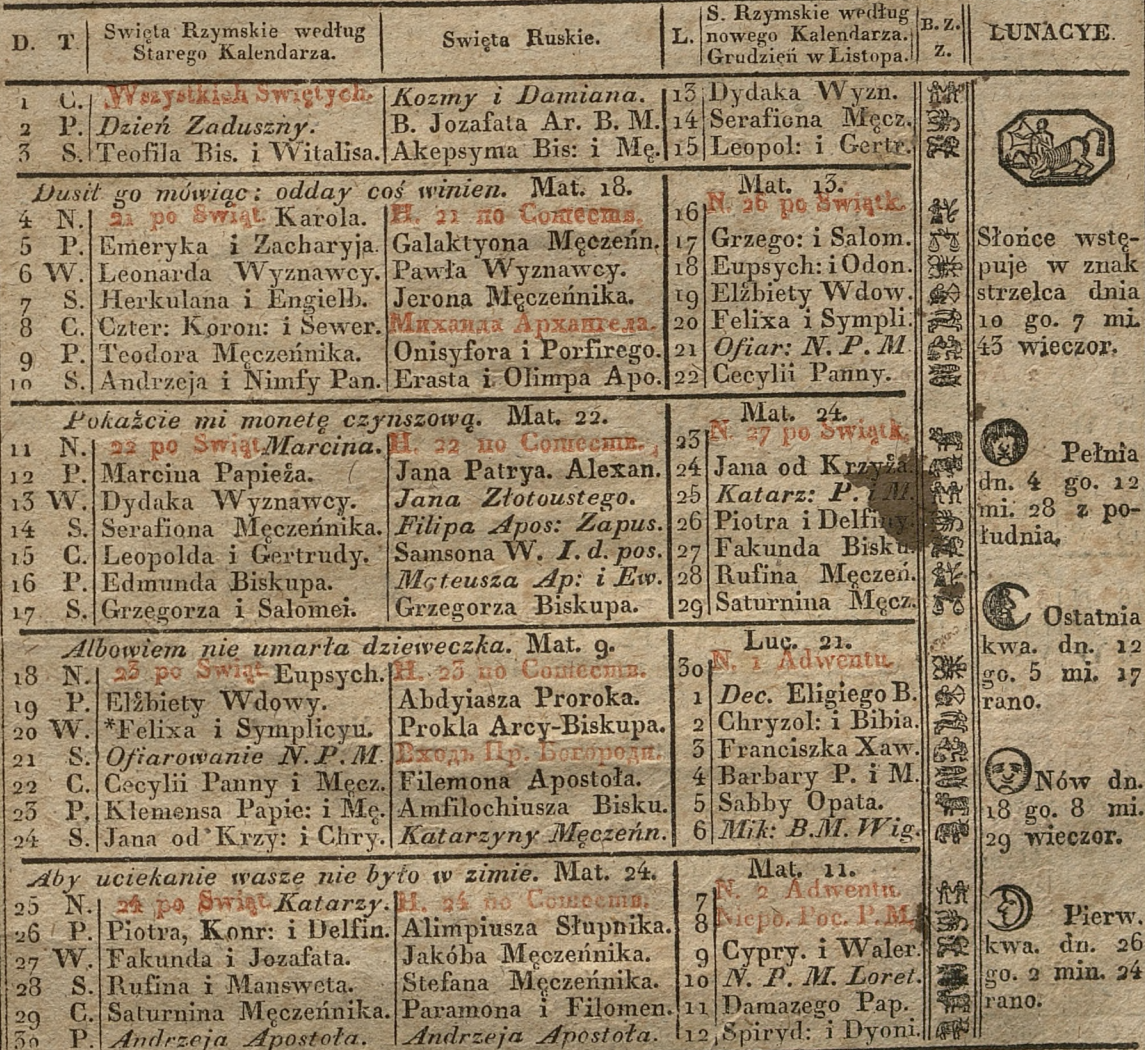 D. T. Swięta Rzymskie według Starego Kalendarza. Swięta Ruskie. L. S. Rzymskie według nowego Kalendarza. Grudzień w Listopa. B. Z. Z. ŁUNACYE.
1 C. Wszystkich Swiętych. Kozmy i Damiana. 13 Dydaka Wyzn.
2 P. Dzień Zaduszny. B. Jozafata Ar. B. M. 14 Serafiona Męcz.
3 S. Teofila Bis. i Witalisa. Akepsyma Bis: i Mę. 15 Leopol: i Gertr.
Dusił go mówiąc: odday coś winien. Mat. 18. Mat. 13.
4 N. 21 po Swiąt. Karola. Н. 21 по Сошеств. 16 N. 26 po Swiątk.
5 P. Emeryka i Zacharyja. Galaktyona Męczeńn. 17 Grzego: i Salom.
6 W. Leonarda Wyznawcy. Pawła Wyznawcy. 18 Eupsych: i Odon.
7 S. Herkulana i Engielb. Jerona Męczeńnika. 19 Elżbiety Wdow.
8 C. Czter: Koron: i Sewer. Михаила Архангела. 20 Felixa i Sympli.
9 P. Teodora Męczeńnika. Onisyfora i Porfirego. 21 Ofiar: N. P. M
10 S. Andrzeja i Nimfy Pan. Erasta i Olimpa Apo. 22 Cecylii Panny.
Pokaźcie mi monetę czynszową. Mat. 22. Mat. 24.
11 N. 22 po Swiąt. Marcina. Н. 22 по Сошеств. 23 N. 27 po Swiątk.
12 P. Marcina Papieża. Jana Patrya. Alexan. 24 Jana od Krzyża.
13 W. Dydaka Wyznawcy. Jana Złotoustego. 25 Katarz: P. i M.
14 S. Serafiona Męczeńnika. Filipa Apos: Zapus. 26 Piotra i Delfiny.
15 C. Leopolda i Gertrudy. Samsona W. I. d. pos. 27 Fakunda Bisku.
16 P. Edmunda Biskupa. Mateusza Ap: i Ew. 28 Rufina Męczeń.
17 S. Grzegorza i Salomei. Grzegorza Biskupa. 29 Saturnina Męcz.
Albowiem nie umarła dzieweczka. Mat. 9. Luc. 21.
18 N. 23 po Swiąt. Eupsych. Н. 23 по Сошеств. 30 N. 1 Adwentu.
19 P. Elżbiety Wdowy. Abdyiasza Proroka. 1 Dec. Eligiego B.
20 W. *Felixa i Symplicyu. Prokla Arcy-Biskupa. 2 Chryzol: i Bibia.
21 S. Ofiarowanie N. P. M. Входъ Пр. Богороди. 3 Franciszka Xaw.
22 C. Cecylii Panny i Męcz. Filemona Apostoła. 4 Barbary P. i M.
23 P. Klemensa Papie: i Mę. Amfilochiusza Bisku. 5 Sabby Opata.
24 S. Jana od Krzy: i Chry. Katarzyny Męczeńn. 6 Mik: B. M. Wig.
Aby uciekanie wasze nie było w zimie. Mat. 24. Mat. 11.
25 N. 24 po Swiąt. Katarzy. Н. 24 по Сошеств. 7 N. 2 Adwentu.
26 P. Piotra, Konr: i Delfin. Alimpiusza Słupnika. 8 Niepo. Poc. P. M.
27 W. Fakunda i Jozafata. Jakóba Męczeńnika. 9 Cypry. i Waler.
28 S. Rufina i Mansweta. Stefana Męczeńnika. 10 N. P. M. Loret.
29 C. Saturnina Męczeńnika. Paramona i Filomen. 11 Damazego Pap.
30 P. Andrzeja Apostoła. Andrzeja Apostoła. 12 Spiryd: i Dyoni.
Słońce wstę-
puje w znak
strzelca dnia
10 go. 7 mi.
43 wieczor.
Pełnia
dn. 4 go. 12
mi. 28 z po-
łudnia.
Ostatnia
kwa. dn. 12
go. 5 mi. 17
rano.
Nów dn.
18 go. 8 mi.
29 wieczor.
Pierw.
kwa. dn. 26
go. 2 min. 24
rano.